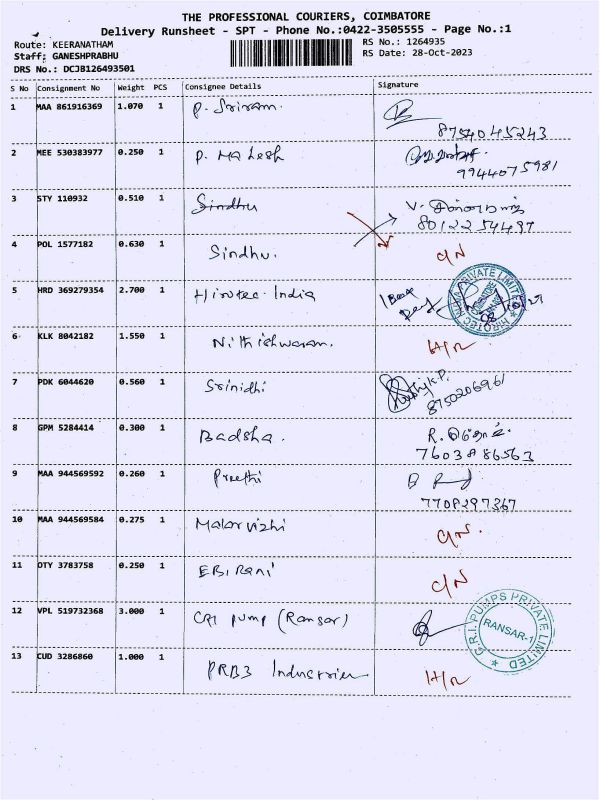 THE PROFESSIONAL COURIERS, COIMBATORE
Delivery Runsheet - SPT - Phone No.:0422-3505555 - Page No.:1
Route: KEERANATHAM
RS No.: 1264935
Staff: GANESHPRABHU
RS Date: 28-Oct-2023
DRS No.: DCJB126493501
S No Consignment No Weight PCS Consignee Details Signature
1 MAA 861916369 1.070 1 P. Sriram.
8754045243
2 MEE 530383977 0.250 1 P. Mahesh
9944075981
3 STY 110932 0.510 1 Sindhu V.
8012254497
4 POL 1577182 0.630 1 Sindhu. C/N
5 HRD 369279354 2.700 1 Hirotec India 1 Box
HIROTEC INDIA PRIVATE LIMITED
6 KLK 8042182 1.550 1 Nithishwaran. H/R
7 PDK 6044620 0.560 1 Srinidhi
8750206961
8 GPM 5284414 0.300 1 Badsha. R.
7603886563
9 MAA 944569592 0.260 1 Preethi
7708297367
10 MAA 944569584 0.275 1 Malarvizhi C/N.
11 OTY 3783758 0.250 1 EBIRani C/N
12 VPL 519732368 3.000 1 CRI pump (Ransar)
C.R.I. PUMPS PRIVATE LIMITED
RANSAR-1
13 CUD 3286860 1.000 1 PRB3 Industries H/R